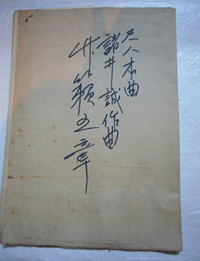 尺八本曲
諸井誠作曲
竹籟五章